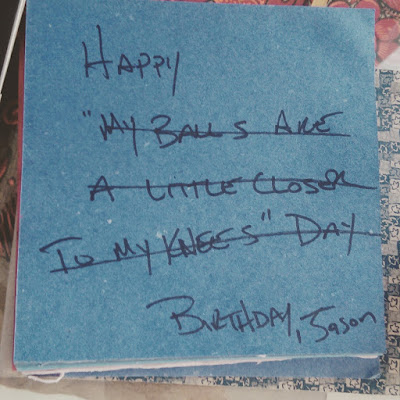 HAPPY
"MY BALLS ARE
A LITTLE CLOSER
TO MY KNEES" DAY
BIRTHDAY, Jason